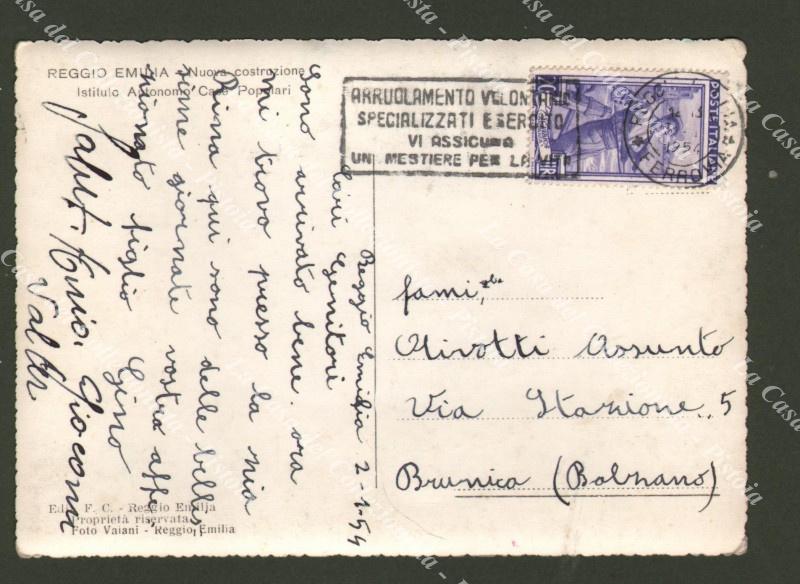 REGGIO EMILIA - Nuova costruzione
Istituto Autonomo Case Popolari
ARRUOLAMENTO VOLONTARI
SPECIALIZZATI ESERCITO
VI ASSICURA
UN MESTIERE PER LA VITA
POSTE ITALIANE
FERROVIA
1954
Reggio Emilia 2-1-54
Cari Genitori
sono arrivato bene. ora
mi trovo presso la mia
qui sono delle bellis
sime giornate vostro affez
zionato figlio Gino
Saluti
Valter
fami,
Olivotti Assunto
Via Stazione, 5
Brunica (Bolzano)
Ediz. F. C. - Reggio Emilia
Proprietà riservata
Foto Vaiani - Reggio Emilia
La Casa del Collezionista - Pistoia